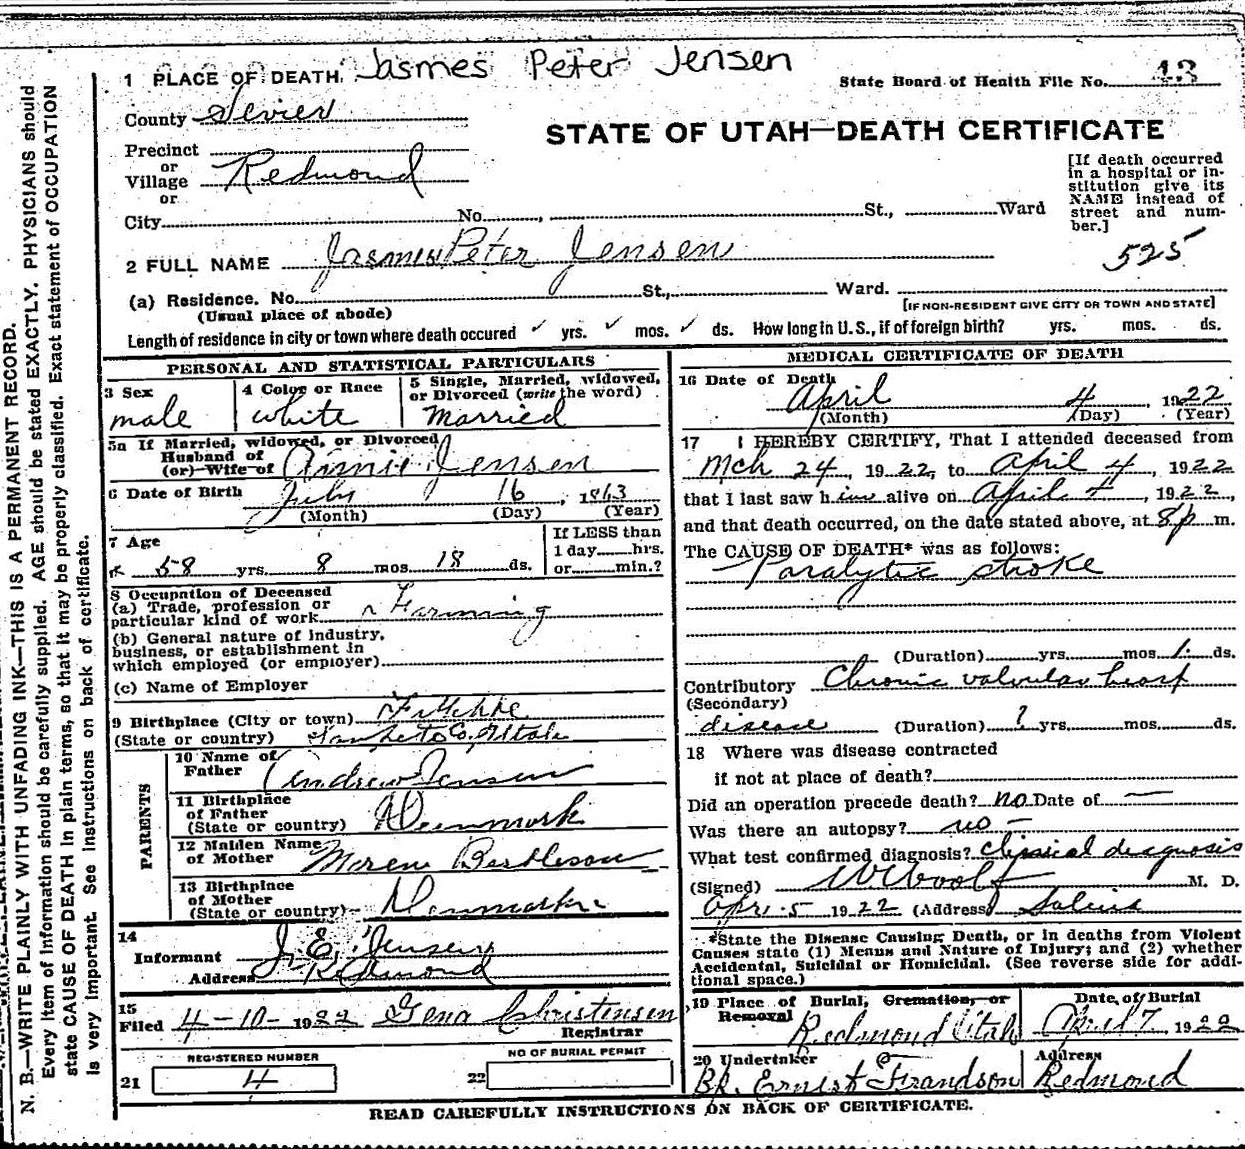 Jasmes Peter Jensen
1 PLACE OF DEATH.
State Board of Health File No. 43
County Sevier
STATE OF UTAH—DEATH CERTIFICATE
Precinct
or
Village Redmond
or
[If death occurred
in a hospital or in-
stitution give its
NAME instead of
street and num-
ber.]
City No. , St., Ward
525
2 FULL NAME Jasmes Peter Jensen
(a) Residence. No. St., Ward.
(Usual place of abode)
[IF NON-RESIDENT GIVE CITY OR TOWN AND STATE]
Length of residence in city or town where death occured ✓ yrs. ✓ mos. ✓ ds. How long in U. S., if of foreign birth? yrs. mos. ds.
PERSONAL AND STATISTICAL PARTICULARS
3 Sex
male
4 Color or Race
white
5 Single, Married, widowed,
or Divorced (write the word)
Married
5a If Married, widowed, or Divorced
Husband of
(or) Wife of Annie Jensen
6 Date of Birth July 16, 1863
(Month) (Day) (Year)
7 Age
58 yrs. 8 mos. 18 ds.
If LESS than
1 day......hrs.
or......min.?
8 Occupation of Deceased
(a) Trade, profession or
particular kind of work Farming
(b) General nature of industry,
business, or establishment in
which employed (or employer)
(c) Name of Employer
9 Birthplace (City or town)
(State or country) Co. Utah
PARENTS
10 Name of
Father Andrew Jensen
11 Birthplace
of Father
(State or country) Denmark
12 Maiden Name
of Mother
13 Birthplace
of Mother
(State or country) Denmark
14
Informant J. E. Jensen
Address Redmond
15
Filed 4-10- 1922 Gena Christensen
Registrar
REGISTERED NUMBER
21 4
NO OF BURIAL PERMIT
22
MEDICAL CERTIFICATE OF DEATH
16 Date of Death
April 4 1922
(Month) (Day) (Year)
17 I HEREBY CERTIFY, That I attended deceased from
Mch 24, 1922, to April 4, 1922
that I last saw him alive on April 4, 1922,
and that death occurred, on the date stated above, at 8 p m.
The CAUSE OF DEATH* was as follows:
Paralytic stroke
(Duration) yrs. mos. 1 ds.
Contributory Chronic valvular heart
(Secondary)
disease (Duration) ? yrs. mos. ds.
18 Where was disease contracted
if not at place of death?
Did an operation precede death? no Date of —
Was there an autopsy? no —
What test confirmed diagnosis? clinical diagnosis
(Signed) M. D.
Apr. 5 1922 (Address) Salina
*State the Disease Causing Death, or in deaths from Violent
Causes state (1) Menus and Nature of Injury; and (2) whether
Accidental, Suicidal or Homicidal. (See reverse side for addi-
tional space.)
19 Place of Burial, Cremation, or
Removal Redmond Utah
Date of Burial
April 7 1922
20 Undertaker
Br. Ernest Frandson
Address
Redmond
READ CAREFULLY INSTRUCTIONS ON BACK OF CERTIFICATE.
N. B.—WRITE PLAINLY WITH UNFADING INK—THIS IS A PERMANENT RECORD.
Every item of information should be carefully supplied. AGE should be stated EXACTLY. PHYSICIANS should
state CAUSE OF DEATH in plain terms, so that it may be properly classified. Exact statement of OCCUPATION
is very important. See instructions on back of certificate.